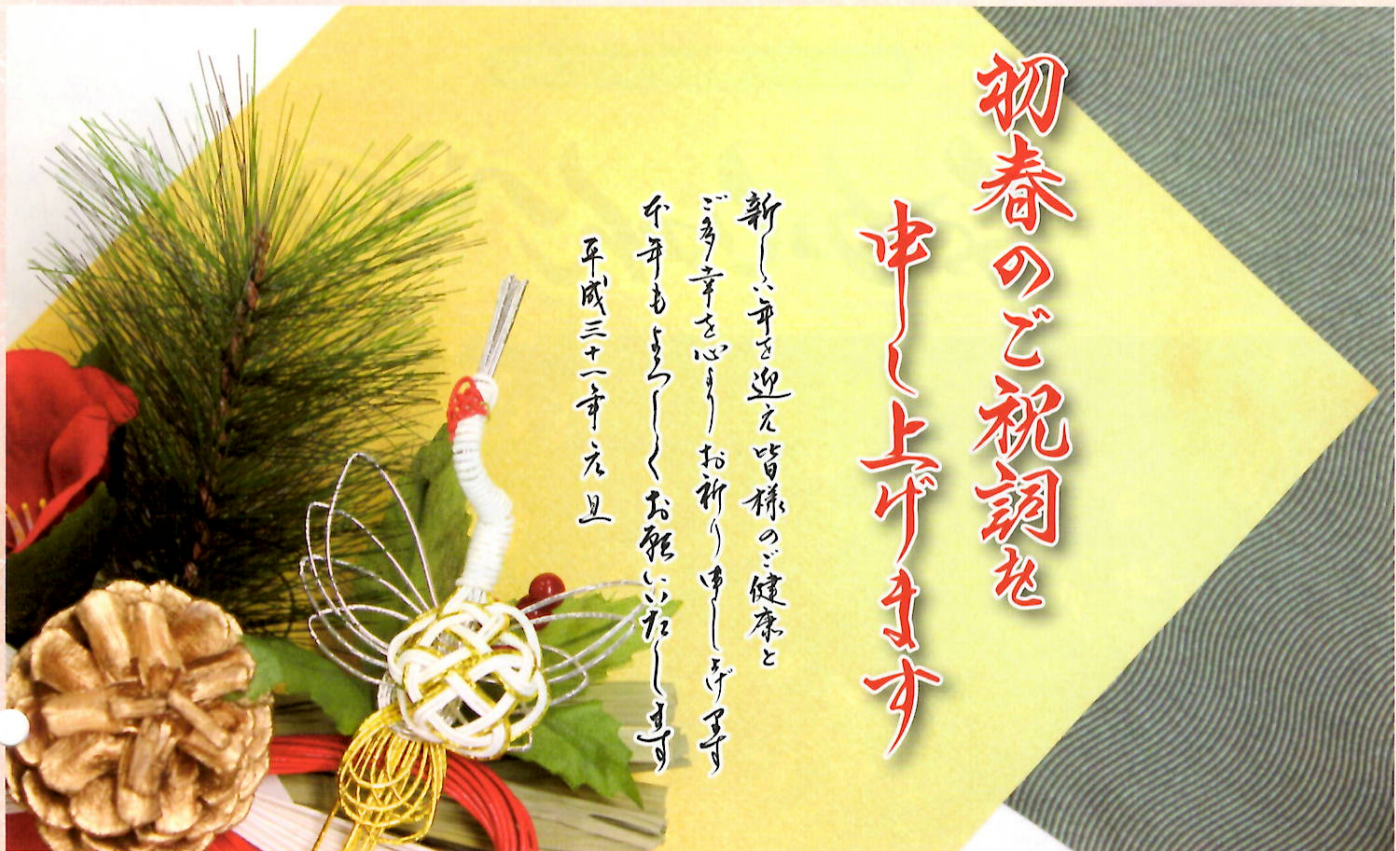 初春のご祝詞を
申し上げます
新しい年を迎え皆様のご健康と
ご多幸を心よりお祈り申し上げます
本年もよろしくお願いいたします
平成三十一年元旦